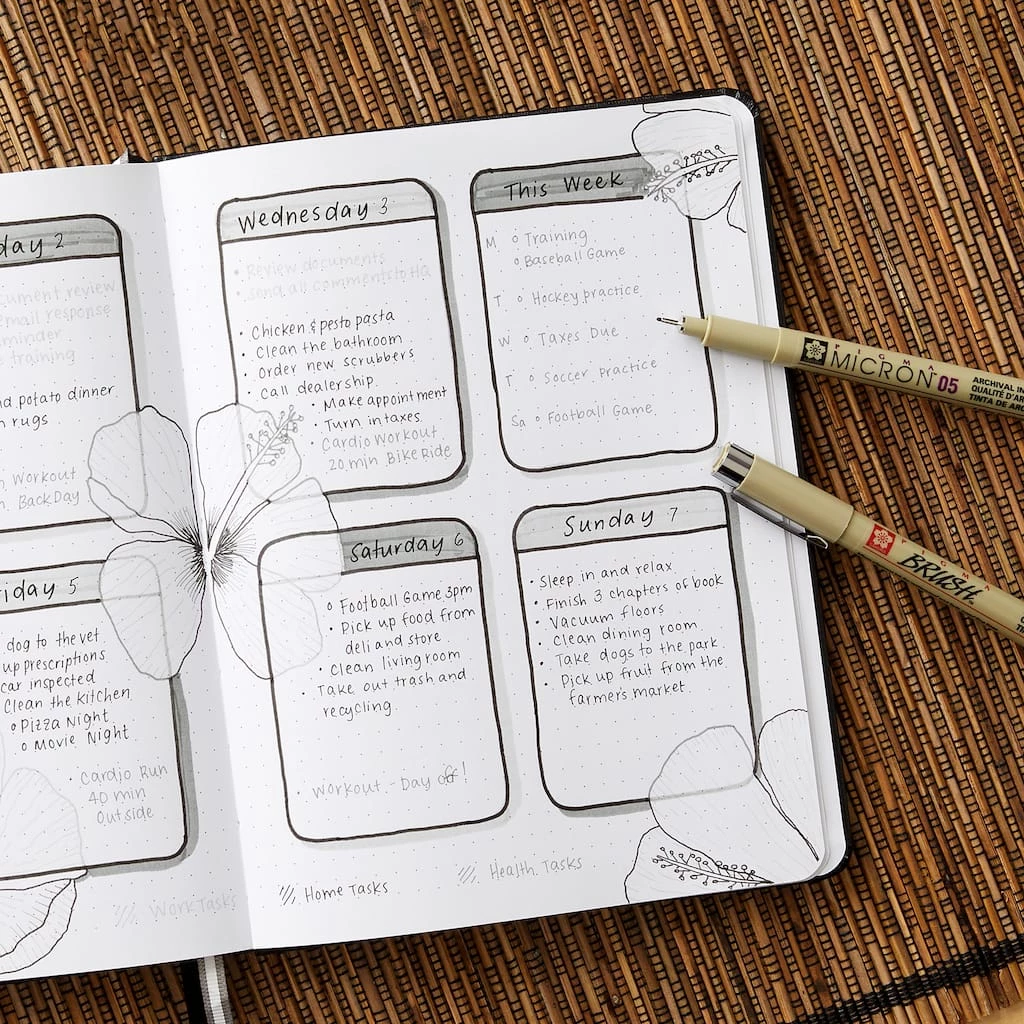 day 2
cument review
email response
minder
training
d potato dinner
rugs
Workout
Back Day
riday 5
dog to the vet
up prescriptions
car inspected
Clean the kitchen
Pizza Night
Movie Night
Cardio Run
40 min
Outside
Work Tasks
Wednesday 3
Review documents
send all comments to HQ
Chicken & pesto pasta
Clean the bathroom
Order new scrubbers
Call dealership.
Make appointment
Turn in taxes.
Cardio Workout
20 min Bike Ride
This Week
M Training
Baseball Game
T Hockey practice
W Taxes Due
T Soccer practice
Sa Football Game
Saturday 6
Football Game 3pm
Pick up food from
deli and store
Clean living room
Take out trash and
recycling.
Workout - Day off!
Sunday 7
Sleep in and relax.
Finish 3 chapters of book
Vacuum floors
Clean dining room
Take dogs to the park.
Pick up fruit from the
farmer's market.
Home Tasks
Health Tasks
PIGMA
MICRON 05
ARCHIVAL IN
QUALITÉ D'AR
TINTA DE AR
BRUSH